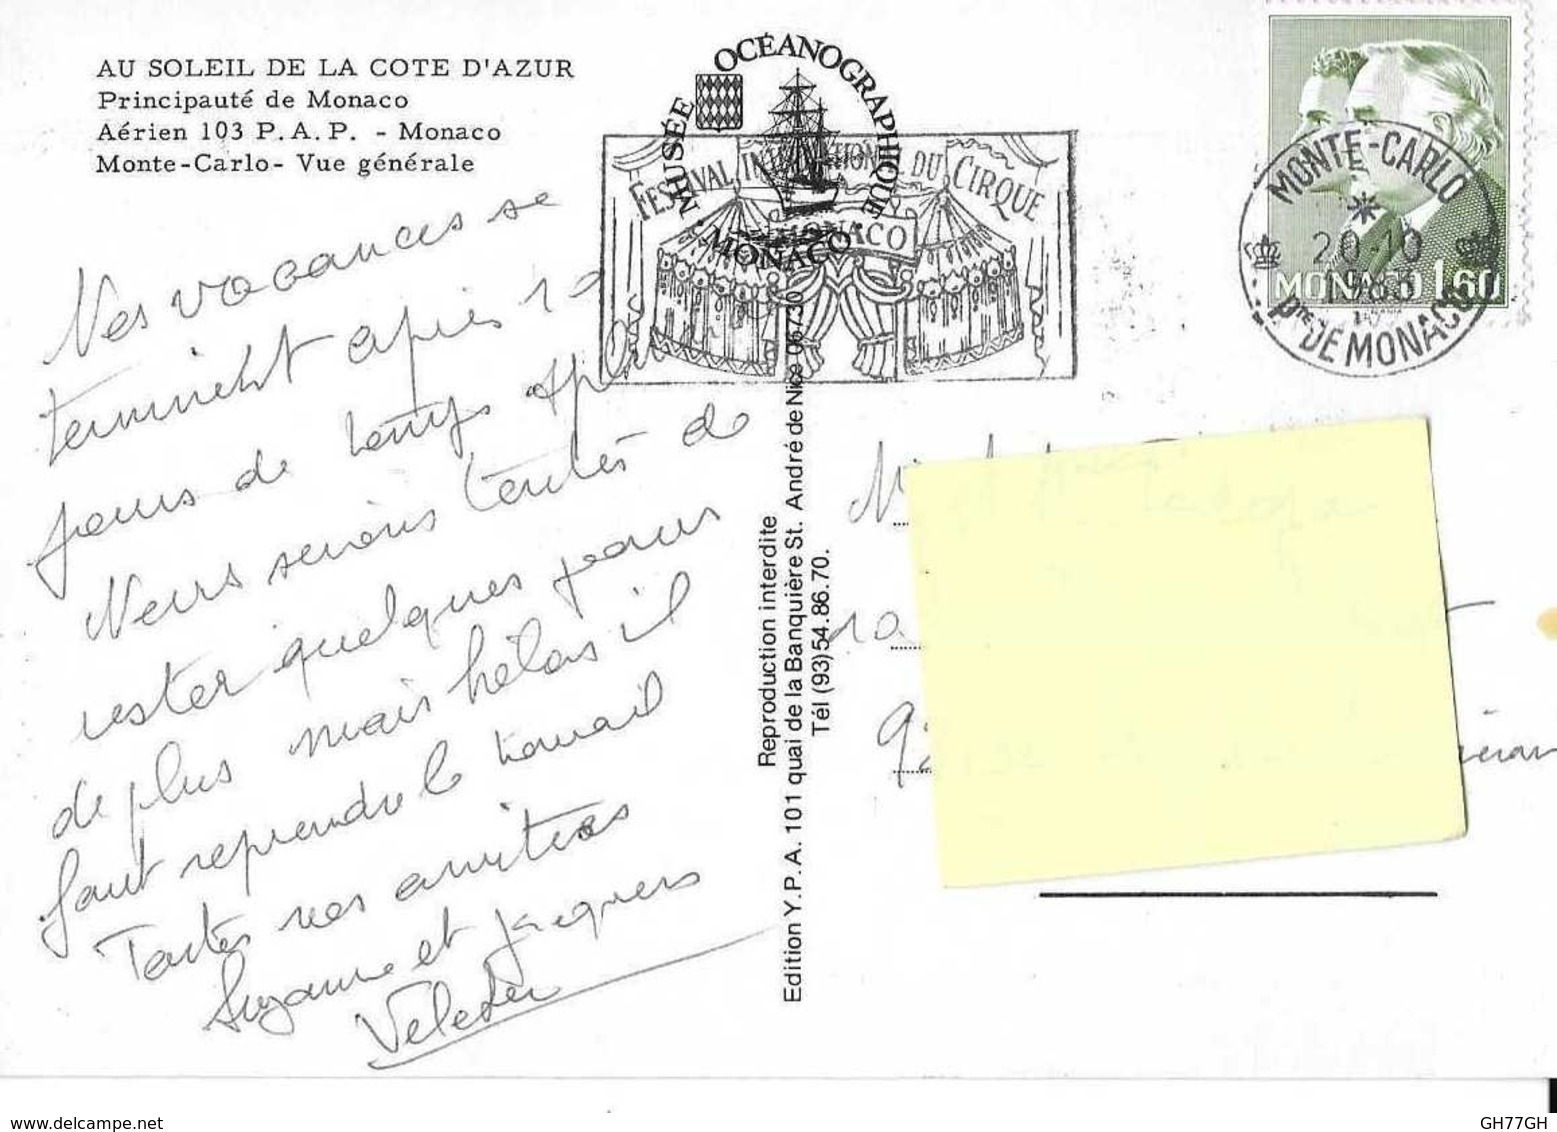 AU SOLEIL DE LA COTE D'AZUR
Principauté de Monaco
Aérien 103 P.A.P. - Monaco
Monte-Carlo- Vue générale
Nos vacances se
terminent après 10
jours de temps
Nous serions tentés de
rester quelques jours
de plus mais hélas il
faut reprendre le travail
Toutes nos amitiés
Suzanne et Jacques
MUSÉE OCÉANOGRAPHIQUE
· MONACO ·
FESTIVAL INTERNATIONAL DU CIRQUE
MONACO
Reproduction interdite
Edition Y.P.A. 101 quai de la Banquière St. André de Nice 06730
Tél (93) 54.86.70.
MONACO 1,60
MONTE-CARLO
20-10
Pté DE MONACO
GH77GH